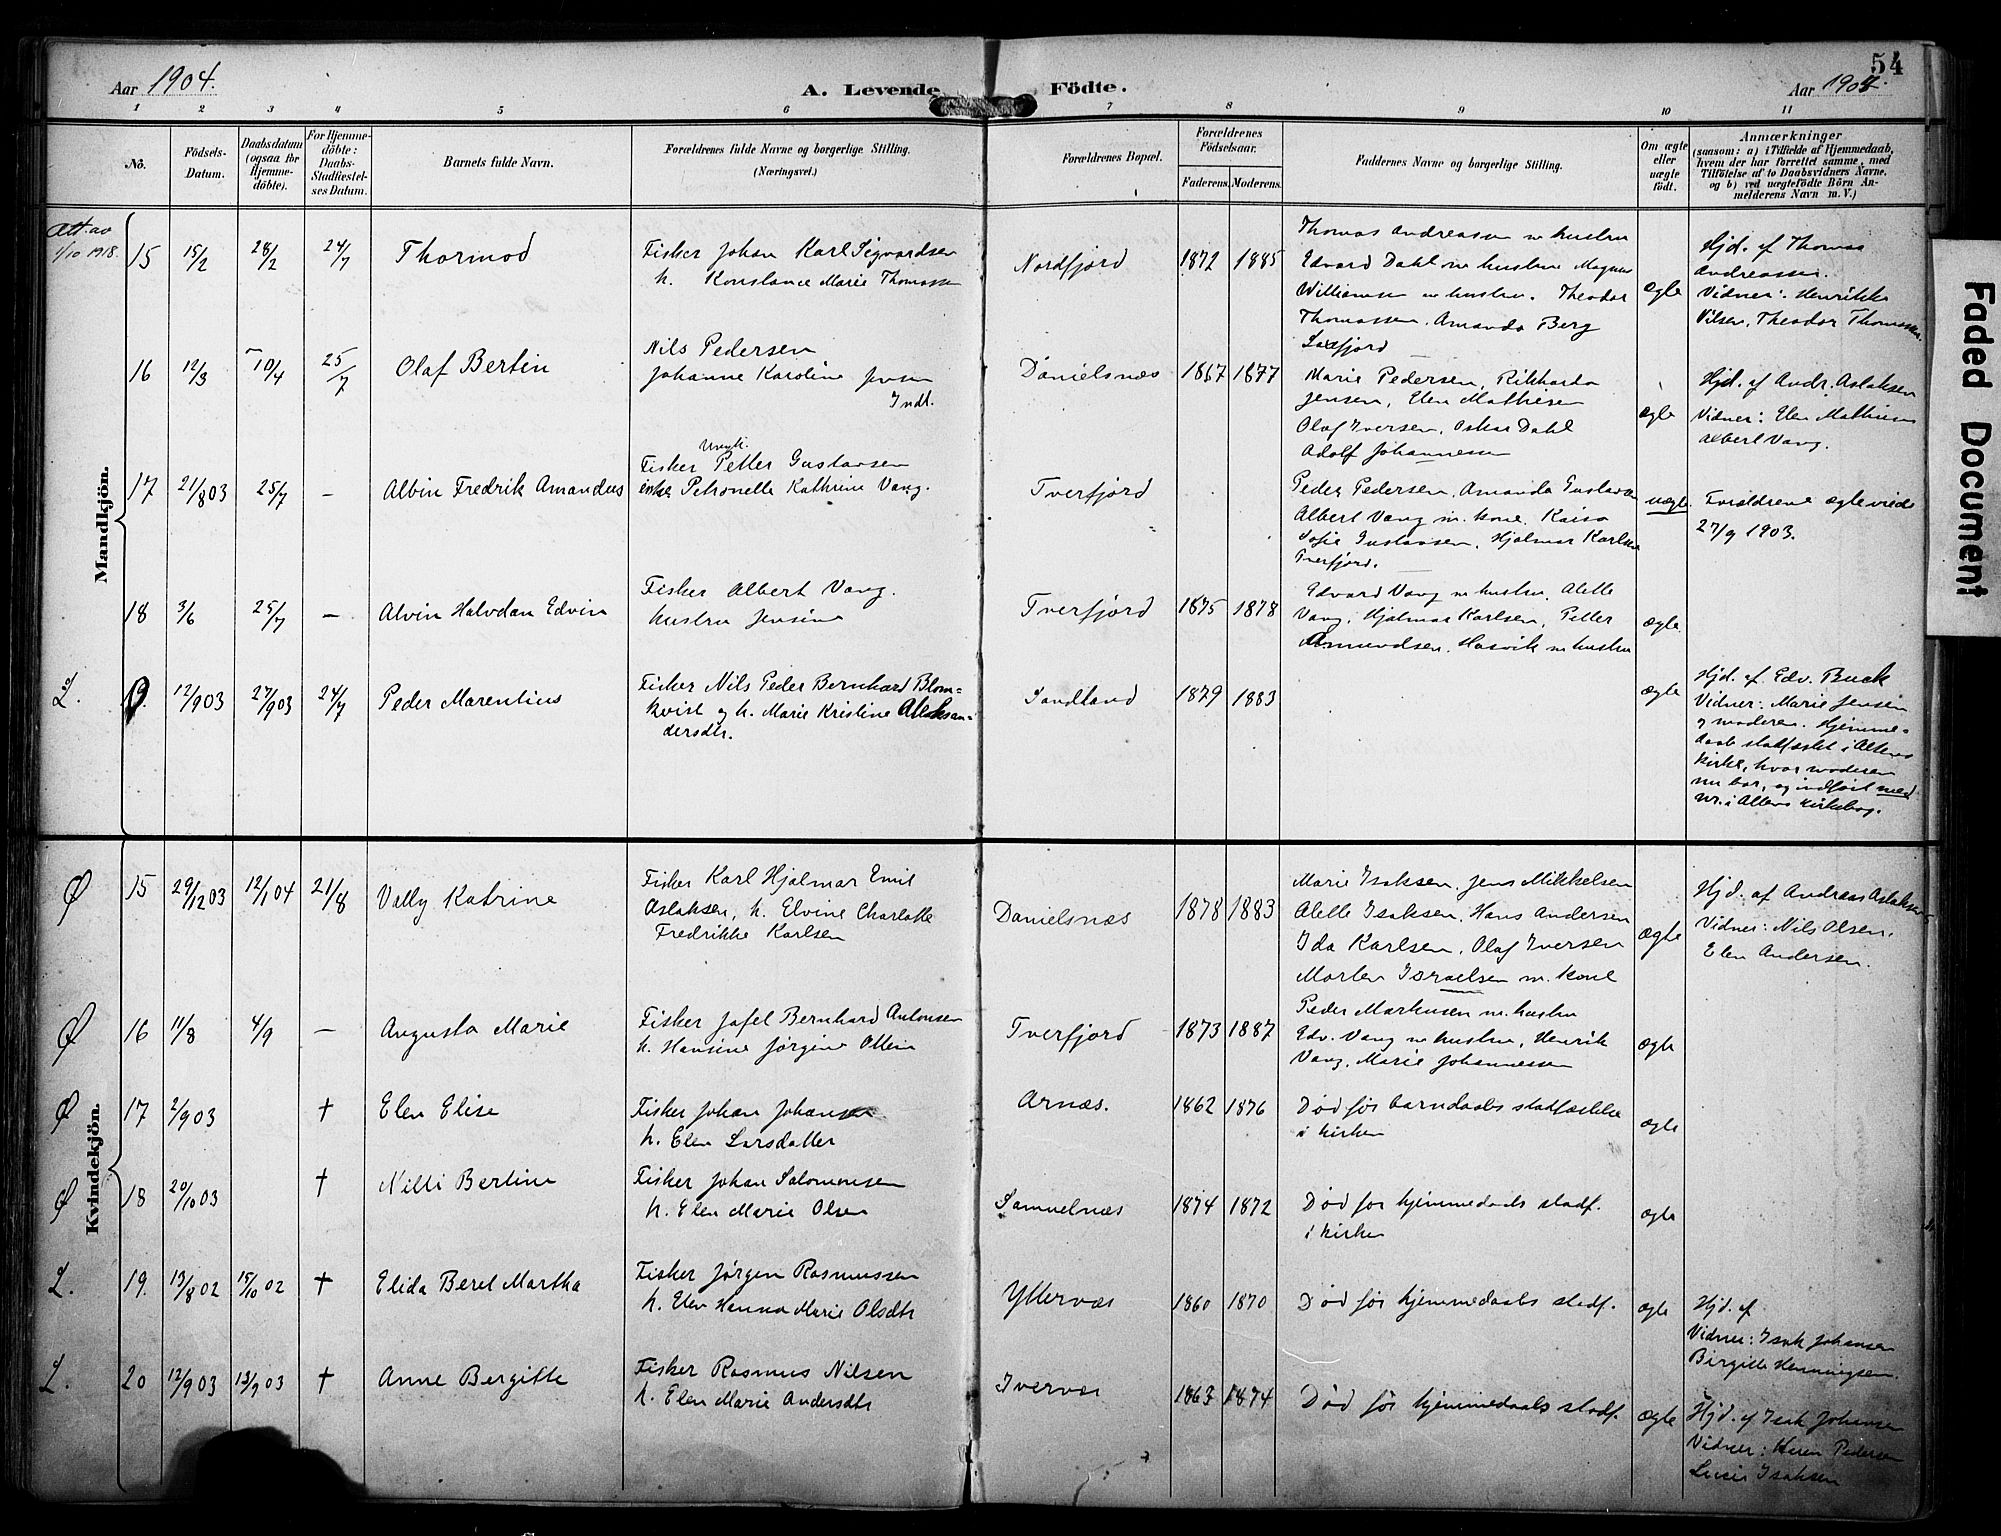 54
Aar 1904.
A. Levende Födte.
Aar 1904.
1 2 3 4 5 6 7 8 9 10 11
No.
Födsels-Datum.
Daabsdatum (ogsaa for Hjemme-döbte).
For Hjemme-döbte: Daabs-Stadfæstel-ses Datum.
Barnets fulde Navn.
Forældrenes fulde Navne og borgerlige Stilling.
(Næringsvei.)
Forældrenes Bopæl.
Forældrenes Födselsaar.
Faderens. Moderens.
Faddernes Navne og borgerlige Stilling.
Om ægte eller uægte födt.
Anmærkninger
(saasom: a) i Tilfælde af Hjemmedaab,
hvem der har forrettet samme, med
Tilföielse af to Daabsvidners Navne.
og b) ved uægtefödte Börn An-
melderens Navn m. V.)
Mandkjön.
Att. av
1/10 1918.
15 15/2 28/2 24/7 Thormod
Fisker Johan Karl Sigvardsen
h. Konstance Marie Thomassen
Nordfjord 1872 1885
Thomas Andreassen m hustru
Edvard Dahl m hustru Magnus
Williamsen m hustru. Theodor
Thomassen. Amanda Berg
ægte
Hjd. af Thomas
Andreassen.
Vidner: Henrikke
Nilsen, Theodor Thomassen.
16 12/3 10/4 25/7 Olaf Bertin
Nils Pedersen
Johanne Karoline Jensen
Indl.
Danielsnæs 1867 1877
Marie Pedersen, Rikharda
Jensen, Elen Mathisen
Olaf Iversen, Oskar Dahl
Adolf Johannessen
ægte
Hjd. af Andr. Aslaksen
Vidner: Elen Mathisen
Albert Vang.
17 21/8 03 25/7 - Albin Fredrik Amandus
Ungk.
Fisker Petter Gustavsen
Petronelle Kathrine Vang.
Tverfjord
Peder Pedersen, Amanda Gustavsen
Albert Vang m. kone. Kaisa
Sofie Gustavsen, Hjalmar Karlsen
Tverfjord.
uægte.
Forældrene ægteviede
27/9 1903.
18 3/6 25/7 - Alvin Halvdan Edvin
Fisker Albert Vang.
Hustru Jensine
Tverfjord 1875 1878
Edvard Vang m hustru, Alette
Vang, Hjalmar Karlsen, Petter
Amundsen. Hasvik m hustru
ægte
L. 19. 12/9 03 27/9 03 24/7 Peder Marentius
Fisker Nils Peder Bernhard Blom-
kvist og h. Marie Kristine Aleksan-
dersdtr.
Sandland 1879 1883
ægte
Hjd. af Edv. Buck
Vidner: Marie Jensen
og moderen. Hjemme-
daab stadfæstet i Altens
kirke, hvor moderen
nu bor, og indført med
nr. i Altens kirkebog.
Kvindekjön.
Ø 15 29/12 03 12/1 04 21/8 Vally Katrine
Fisker Karl Hjalmar Emil
Aslaksen, h. Elvine Charlotte
Fredrikke Karlsen
Danielsnæs 1878 1883
Marie Isaksen. Jens Mikkelsen
Alette Isaksen. Hans Andersen
Ida Karlsen, Olaf Iversen
Morten Israelsen m. kone
ægte
Hjd. af Andreas Aslaksen
Vidner: Nils Olsen,
Elen Andersen.
Ø 16 11/8 4/9 - Augusta Marie
Fisker Jafet Bernhard Antonsen
h. Hansine Jørgine
Tverfjord 1873 1887
Peder Markusen m. hustru
Edv. Vang m hustru, Henrik
Vang, Marie Johannessen
ægte
Ø 17 2/9 03 † Elen Elise
Fisker Johan Johansen
h. Elen Larsdatter
Arnæs. 1862 1876
Død før barndaabs stadfæstelse
i kirken
ægte
Ø 18 20/10 03 † Nilli Bertine
Fisker Johan Salomonsen
h. Elen Marie Olsen
Samuelnæs 1874 1872
Død før hjemmedaabs stadf.
i kirken
ægte
L. 19. 13/8 02 15/10 02 † Elida Beret Martha
Fisker Jørgen Rasmussen
h. Elen Hanna Marie Olsdtr
Yttervær 1860 1870
Død før hjemmedaabs stadf.
ægte
Hjd. af
Vidner: Isak Johansen
Birgitte Henningsen.
L. 20 12/9 03 13/9 03 † Anne Bergitte
Fisker Rasmus Nilsen
h. Elen Marie Andersdtr
Ivervær 1863 1874
Død før hjemmedaabs stadf.
ægte
Hjd. af Isak Johansen
Vidner: Karen Pedersen
Lusie Isaksen
Faded Document